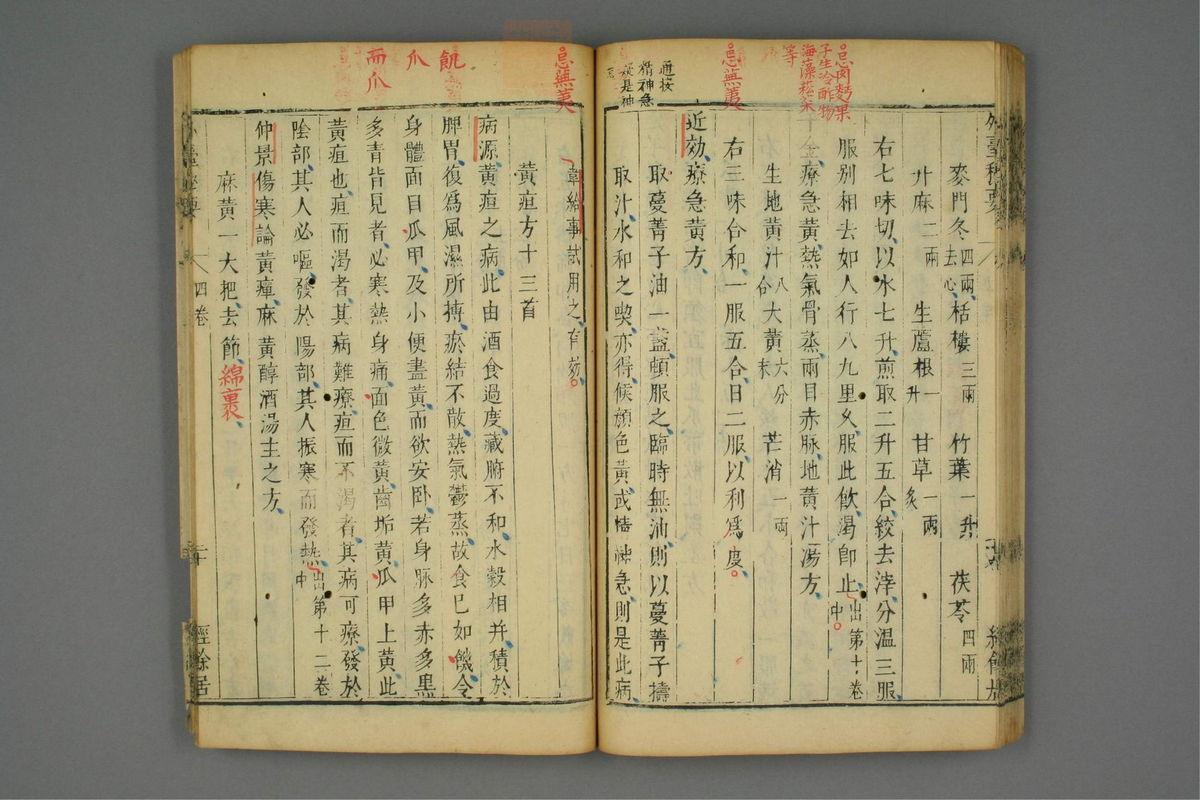 忌肉麪果
子生冷酢物
海藻菘菜
等
忌蕪荑
通按
精神急
疑是神
外臺秘要
麥門冬四兩去心 栝樓三兩 竹葉一升 茯苓四兩
升麻二兩 生蘆根一升 甘草一兩炙
右七味切以水七升煎取二升五合絞去滓分溫三服
服別相去如人行八九里久服此飲渴即止出第十卷中
療急黃熱氣骨蒸兩目赤脉地黃汁湯方
生地黃汁八合 大黃六分末 芒消一兩
右三味合和一服五合日二服以利為度
近効療急黃方
取蔓菁子油一盞頓服之臨時無油則以蔓菁子擣
取汁水和之喫亦得候顏色黃或精神急則是此病
忌蕪荑
飢
爪
而爪
韋給事試用之有効
黃疸方十三首
病源黃疸之病此由酒食過度藏腑不和水穀相并積於
脾胃復為風濕所搏瘀結不散熱氣鬱蒸故食已如饑令
身體面目瓜甲及小便盡黃而欲安卧若身脉多赤多黑
多青皆見者必寒熱身痛面色微黃齒垢黃瓜甲上黃此
黃疸也疸而渴者其病難療疸而不渴者其病可療發於
陰部其人必嘔發於陽部其人振寒而發熱出第十二卷中
仲景傷寒論黃疸麻黃醇酒湯主之方
麻黃一大把去節綿裹
四卷
二十
經餘居